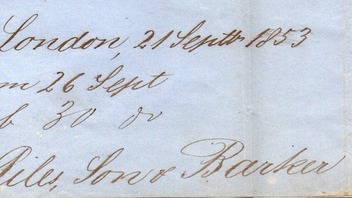 London, 21 Septr 1853
m 26 Sept
30 do
Giles, Son & Barker